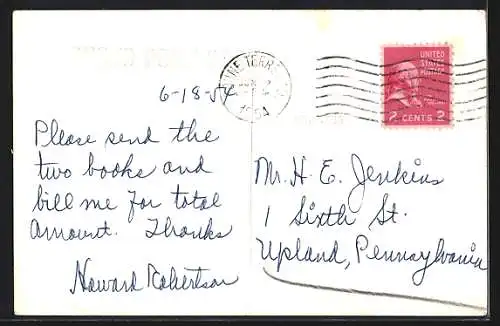 6-18-54
Please send the
two books and
bill me for total
amount. Thanks
Howard Robertson
TERR
1954
UNITED
STATES
POSTAGE
2 CENTS 2
Mr. H. E. Jenkins
1 Sixth St.
Upland, Pennsylvania